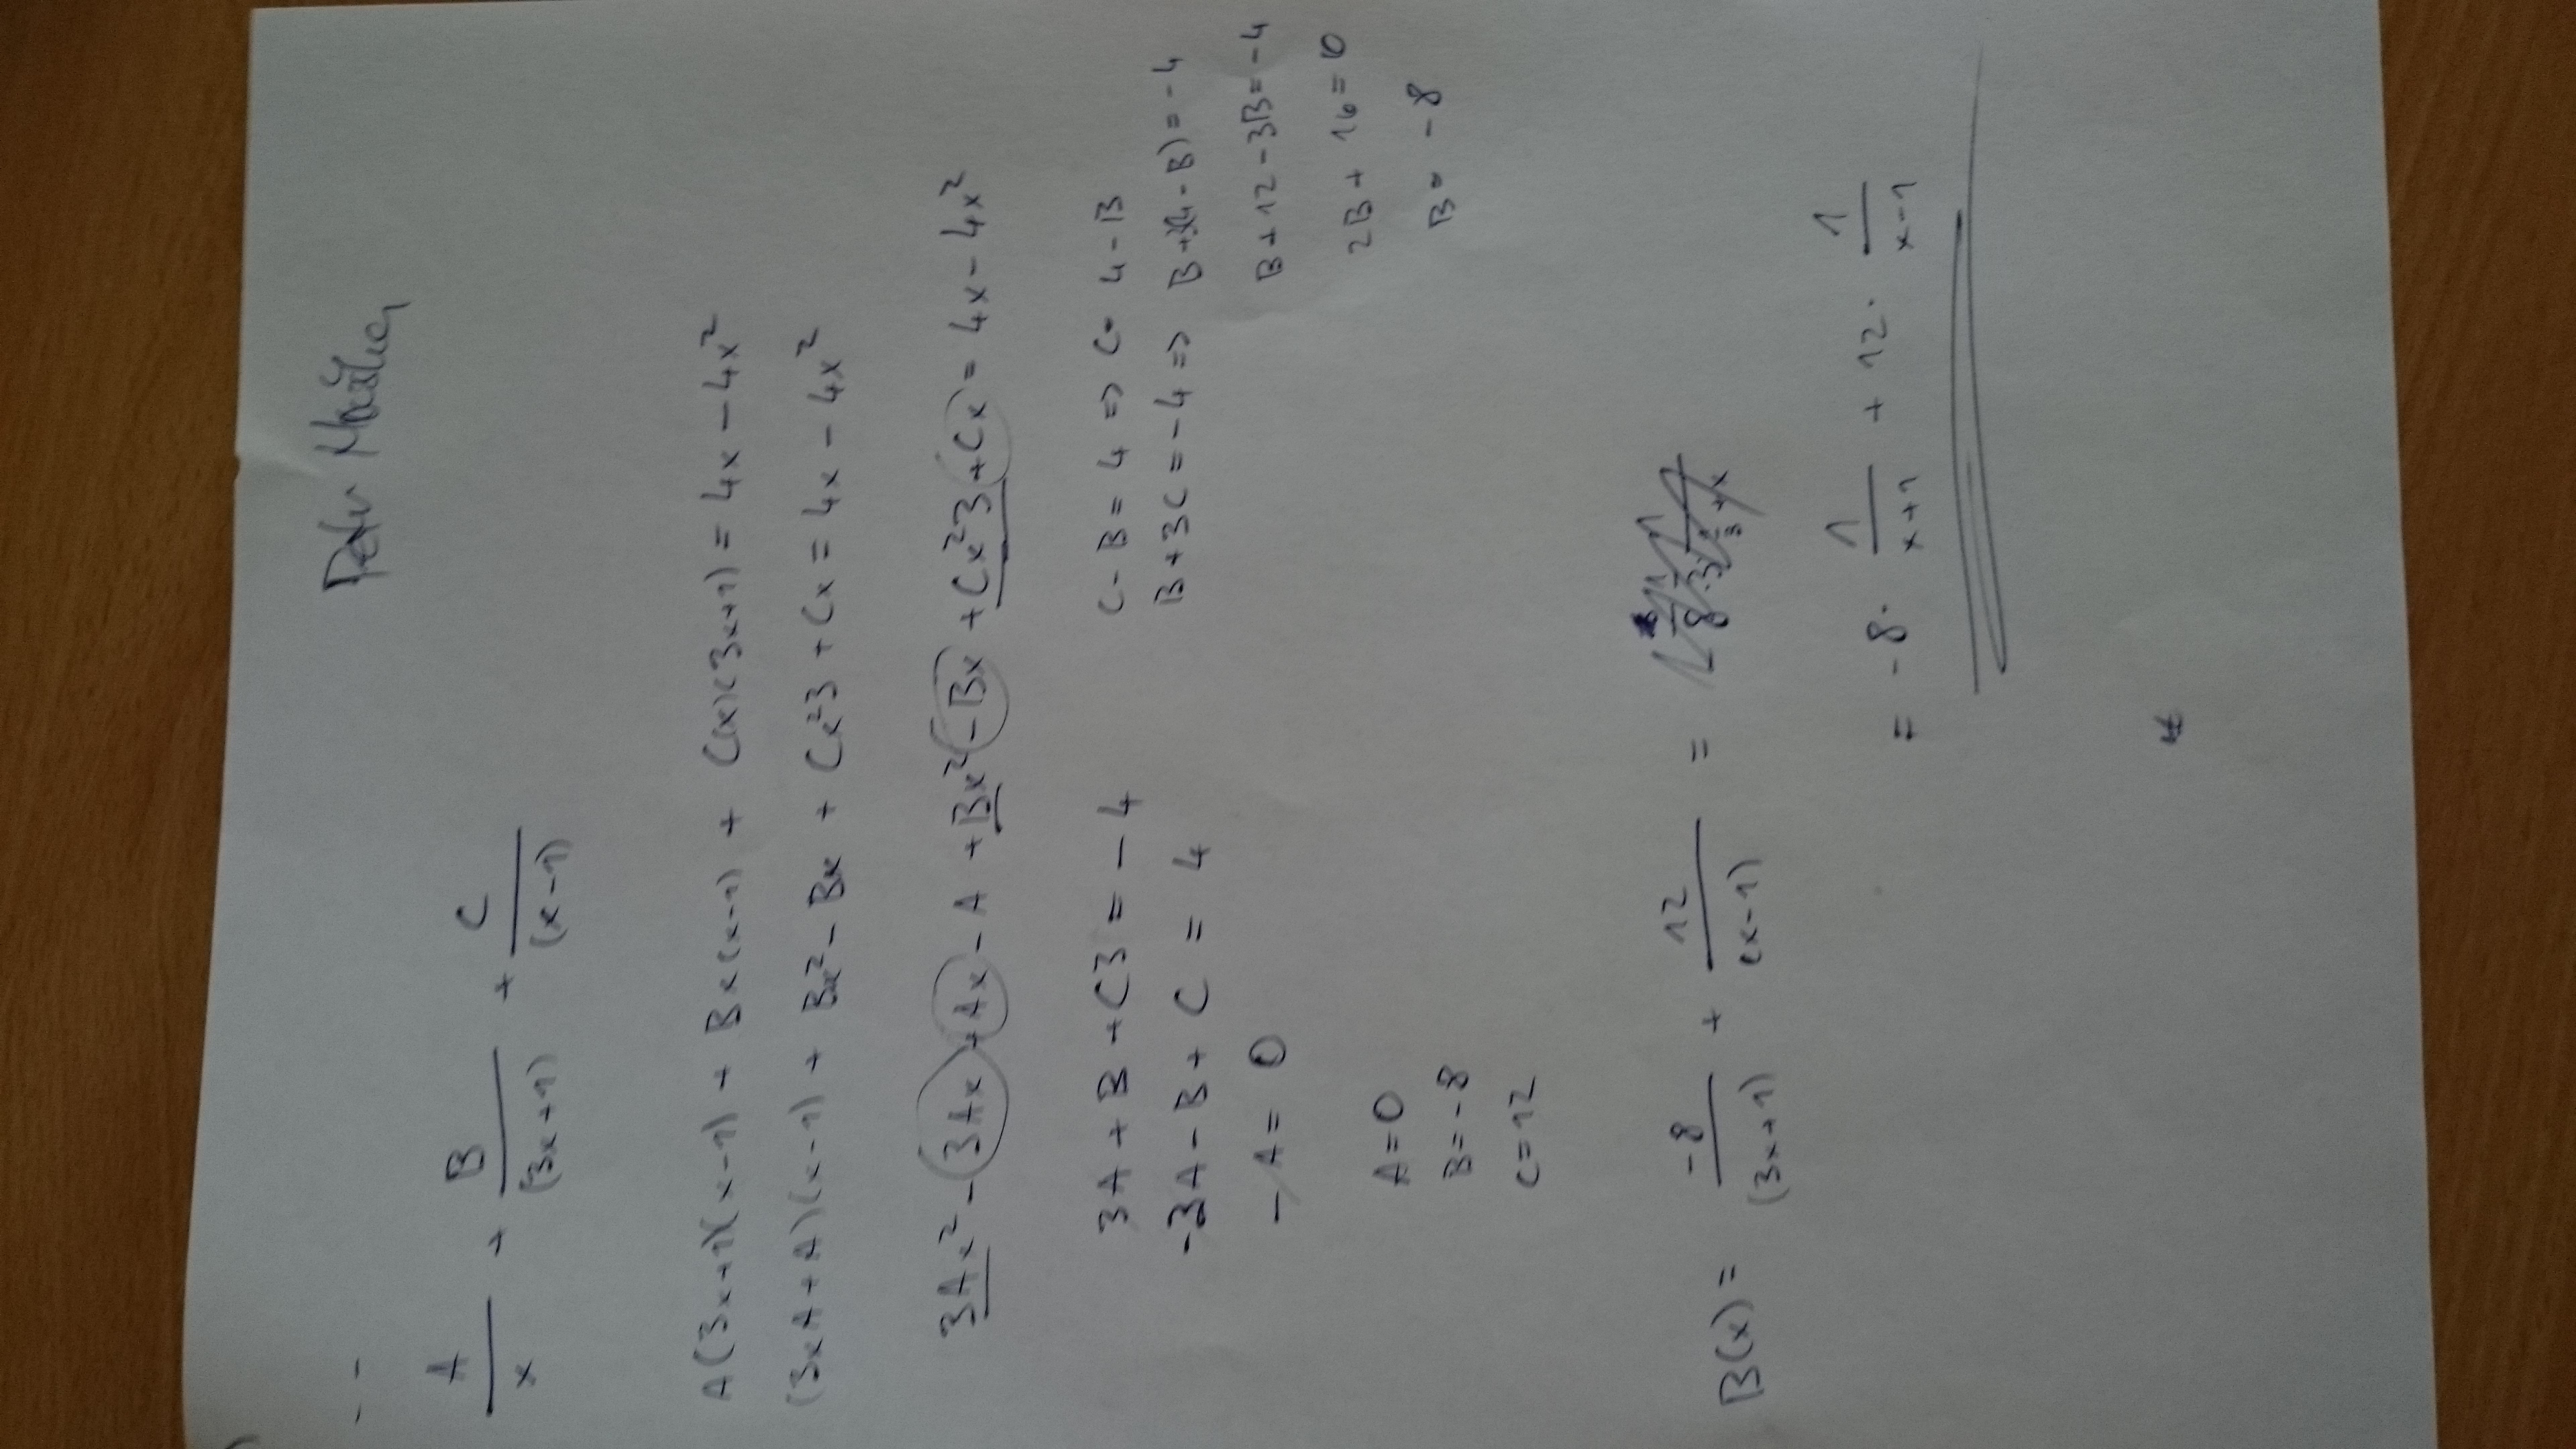 Petr
A/x + B/(3x+1) + C/(x-1)
A(3x+1)(x-1) + Bx(x-1) + C(x)(3x+1) = 4x - 4x²
(3xA + A)(x-1) + Bx² - Bx + Cx²3 + Cx = 4x - 4x²
3Ax² - 3Ax + Ax - A + Bx² - Bx + Cx²3 + Cx = 4x - 4x²
3A + B + C3 = -4
-2A - B + C = 4
- A = 0
A = 0
B = -8
C = 12
C - B = 4 => C = 4 - B
B + 3C = -4 => B + 3(4 - B) = -4
B + 12 - 3B = -4
2B + 16 = 0
B = -8
B(x) = -8/(3x+1) + 12/(x-1) =
= -8 · 1/x+1 + 12 · 1/x-1